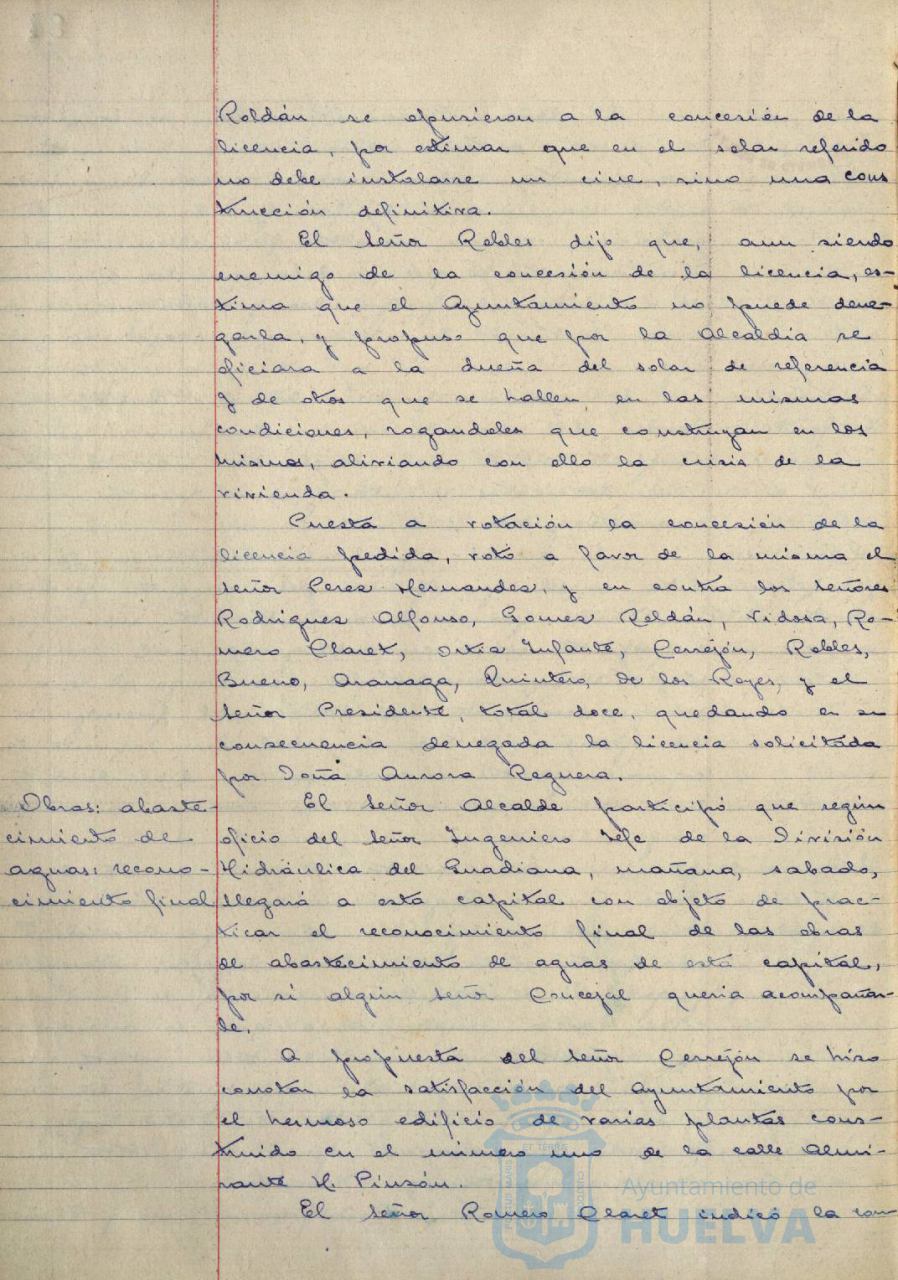 Roldán se opusieron a la concesión de la
licencia, por estimar que en el solar referido
no debe instalarse un cine, sino una cons
trucción definitiva.
El señor Robles dijo que, aun siendo
enemigo de la concesión de la licencia, es-
tima que el Ayuntamiento no puede dene-
garla, y propuso que por la Alcaldía se
oficiara a la dueña del solar de referencia
y de otros que se hallen en las mismas
condiciones, rogandoles que construyan en los
mismos, aliviando con ello la crisis de la
vivienda.
Puesta a votación la concesión de la
licencia pedida, votó a favor de la misma el
señor Perez Hernandez, y en contra los señores
Rodriguez Alfonso, Gomez Roldán, Vidosa, Ro-
mero Claret, Ortiz Infante, Cerrejón, Robles,
Bueno, Aranaga, Quintero, de los Reyes, y el
señor Presidente, total doce, quedando en su
consecuencia denegada la licencia solicitada
por Doña Aurora Reguera.
Obras: abaste-
cimiento de
aguas: recono-
cimiento final
El señor Alcalde participó que según
oficio del señor Ingeniero Jefe de la División
Hidráulica del Guadiana, mañana, sabado,
llegará a esta capital con objeto de prac-
ticar el reconocimiento final de las obras
de abastecimiento de aguas de esta capital,
por si algún señor Concejal queria acompañar-
le.
A propuesta del señor Cerrejón se hizo
constar la satisfacción del Ayuntamiento por
el hermoso edificio de varias plantas cons-
truido en el número uno de la calle Almi-
rante H. Pinzón.
El señor Romero Claret indicó la con-
Ayuntamiento de
HUELVA